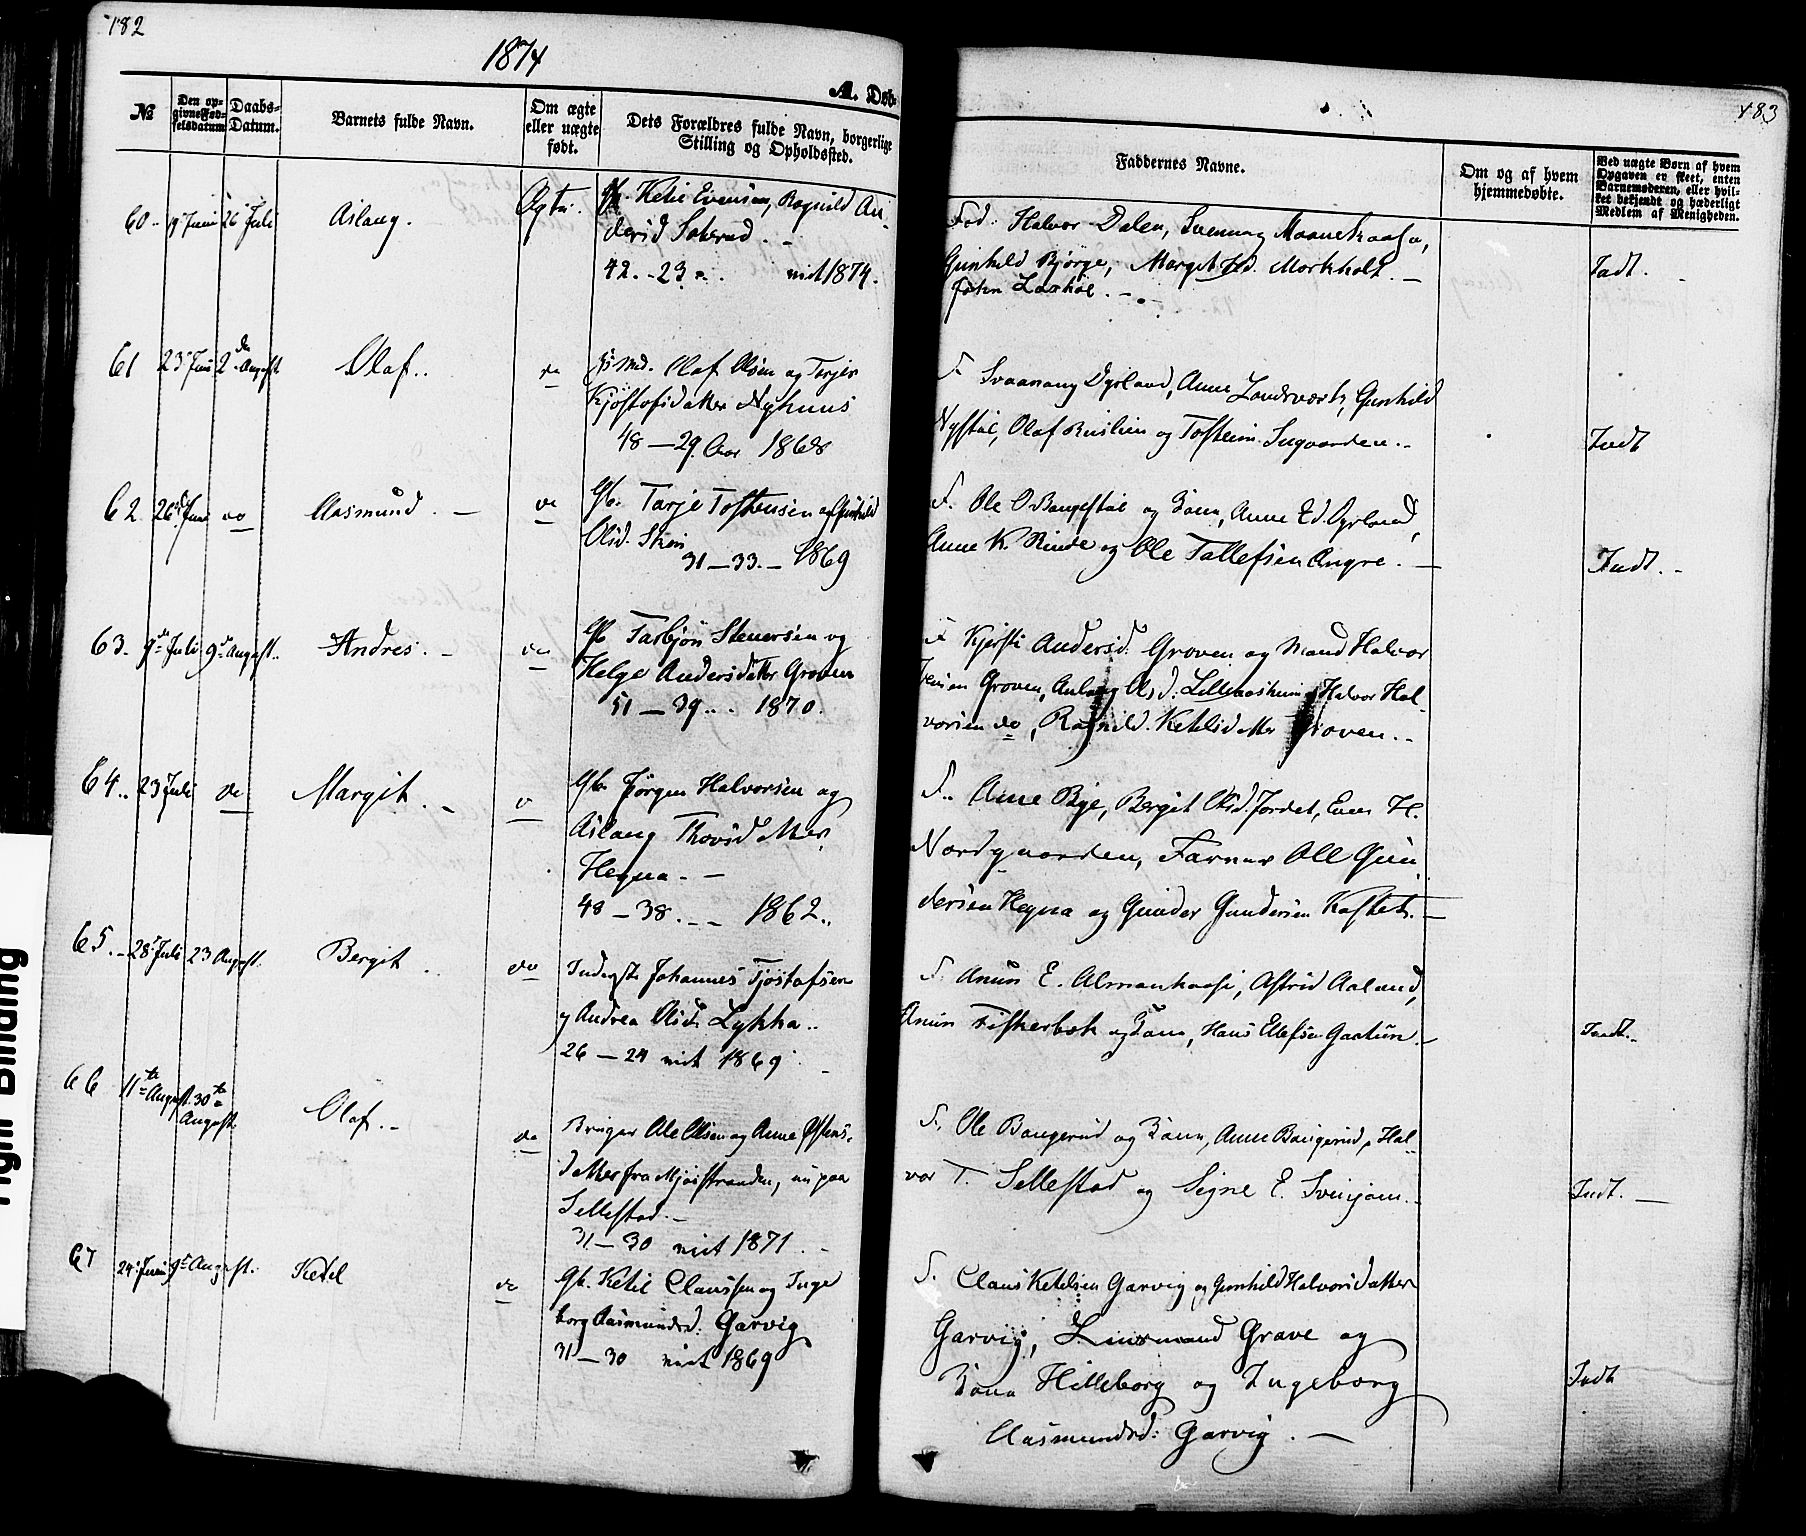 182
1874
A. Døb-
№
Den op-
givne Fød-
selsdatum
Daabs-
Datum.
Barnets fulde Navn.
Om ægte
eller uægte
født.
Dets Forældres fulde Navn, borgerlige
Stilling og Opholdssted.
60.. 9 Juni 26 Juli Aslaug. Ægte. Gb. Ketil Evensen, Ragnild An-
dersd
42.-23 - viet 1874.
61 23 Juni 2den August Olaf.. do Hsmd. Olaf Olsen og Terjer
Kjøstofsdatter Nyhuus
48 - 29 Aar 1868
62. 26 Juni do Aasmund. - do Gb. Tarje Tostensen og Gunhild
Olsd. Skori
31 - 33. - 1869
63. 9de Juli 9de August.. Andres. - do Gb Tarbjøn Steuersen og
Helge Andersdatter Groven
51 - 39.. . 1870.
64.. 23 Juli do Margit. - do Gb. Jørgen Halvorsen og
Aslaug Thovsdatter
Hegna. -
48 - 38. - - 1862..
65. - 28 Juli 23 August. Bergit .. do Inderst Johannes Tjostofsen
og Andrea Olsd. Lykka..
26 - 24 viet 1869. -
66 11te August. 30te August. Olaf. - do Bruger Ole Olsen og Anne Østens-
datter fra Mjøsstranden, nu paa
Sellestad. -
31 - 30 viet 1871. -
67 24 Juni 9de August. Ketil do Gb. Ketil Claussen og Inge
borg Aasmundsd. Garvig
31 - 30 viet 1869
183
Faddernes Navne.
Om og af hvem
hjemmedøbte.
Ved uægte Børn af hvem
Opgaven er skeet, enten
Barnemoderen, eller hvil-
ket bekjendt og hæderligt
Medlem af Menigheden.
Fad: Halvor Dalen, Svenung Maanekaasa,
Gunhild Bjørge, Margit Morkholt. -
Indt. -
F. Svaanaug Dyrland, Anne Landsverk, Gunhild
Nystøl, Olaf Ruslien og Tostein Sugaarden..
Indt
F. Ole O. Baugestøl og Kone, Anne Ed. Dyrland,
Anne K. Rinde og Ole Tallefsen Angre. -
Indt. -
F Kjersti Andersd. Groven og Mand Halvor
Groven, Aslaug Olsd. Lillemosheim, Halvor Hal-
vorsen do, Ragnild Ketilsdatter Groven..
F.. Anne Bye, Bergit Olsd. Jordet, Even H.
Nordgaarden, Farmor Ole Gun-
dersen Hegna og Gunder Gundersen Kaftet. -
F. Anun E. Almankaasa, Astrid Aaland,
Anun Fiskerbæk og Kone, Hans Ellefsen Gaatun. -
Indt. -
F. Ole Baugerud og Kone, Anne Baugerud, Hal-
vor T. Sellestad og Signe E. Sveigam. -
Indt. -
F. Claus Ketilsen Garvig og Gunhild Halvorsdatter
Garvig, Grave og
Kone Hilleborg og Ingeborg
Aasmundsd: Garvig. -
Indt
Right Binding